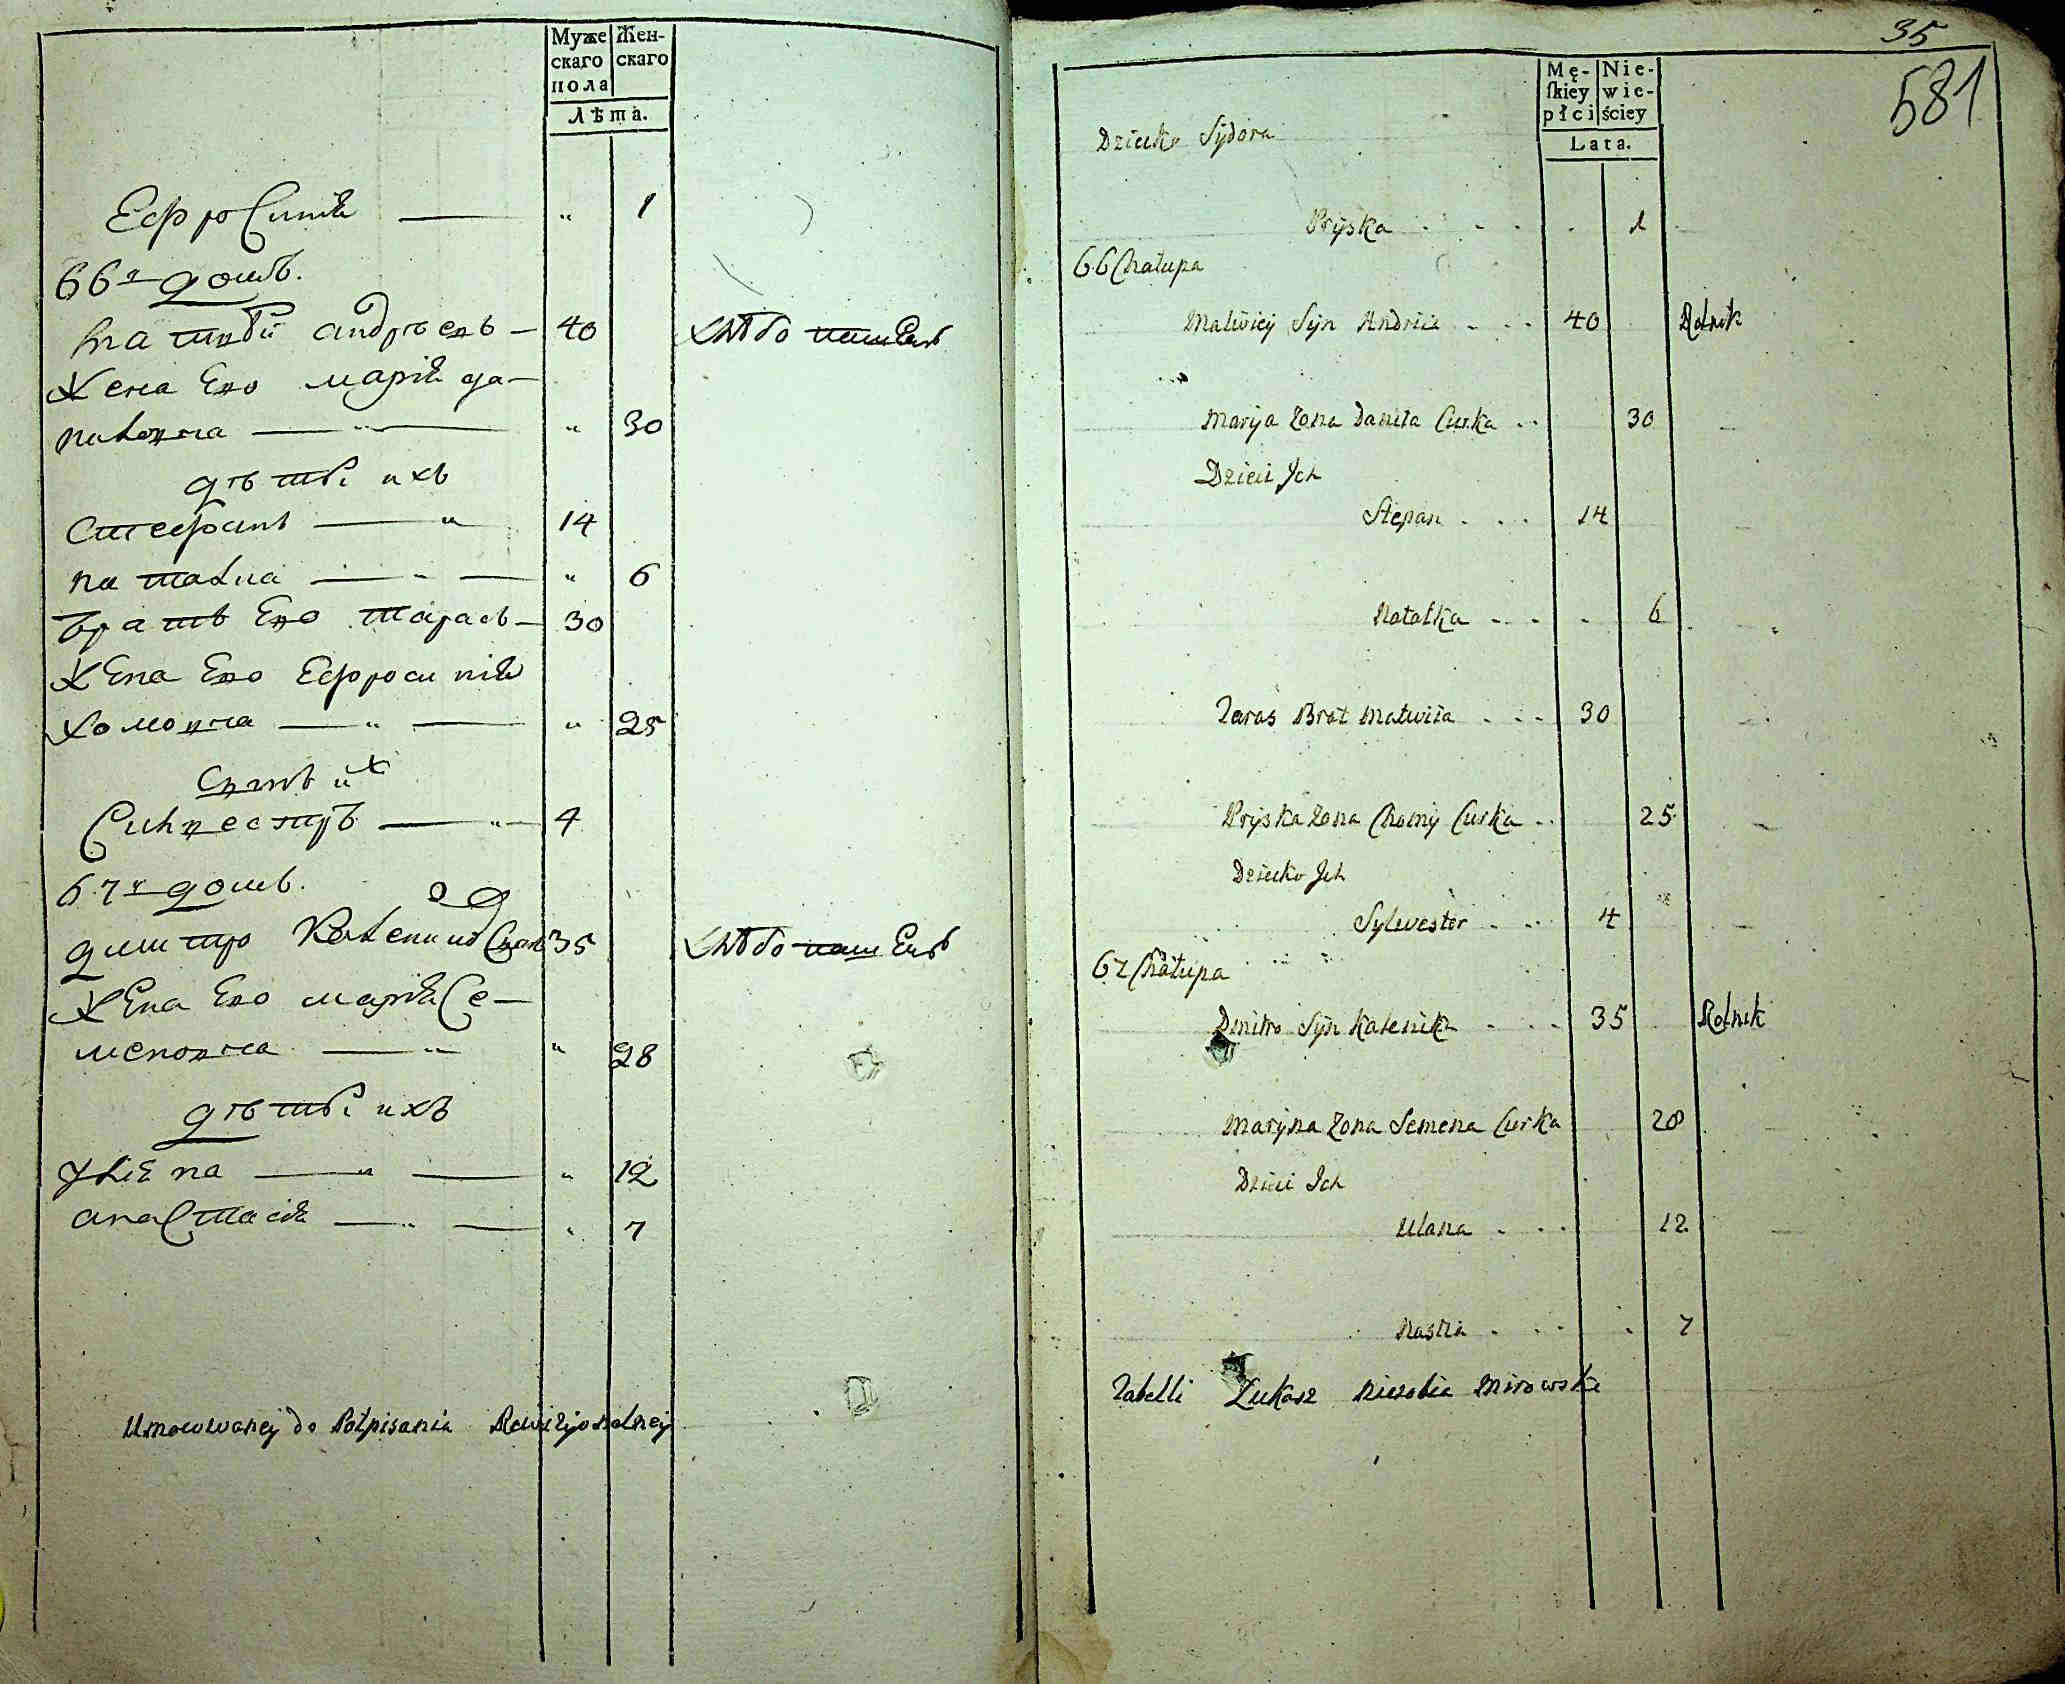 Муже Жен-
скаго скаго
пола
Лѣта.
Ефросинія — „ 1
66й домъ.
Матвѣй андрѣевъ — 40 хлѣбопашецъ
Жена Его марія да-
ниловна — „ 30
дѣти ихъ
Стефанъ — „ 14
наталиа — „ 6
братъ Его тарасъ — 30
Жена Его Ефросинія
хомовна — „ 25
Сынъ их
Силвестръ — „ 4
67й домъ.
дмитро Калениковъ Сынъ 35 хлѣбопашецъ
Жена Его марія Се-
меновна — „ 28
дѣти ихъ
Улиѣна — „ 12
анастасія — „ 7
Umocowanej do Potpisania Rewizyonalnej
35
581
Mę- Nie-
ſkiey wie-
płci ściey
Lata.
Dziecko Sydora
Pryska 1
66 Chałupa
Matwiey Syn Andrija 40 Rolnik
Maryja Zona Daniła Curka 30
Dzieci Ich
Stepan 14
Natalka 6
Taras Brat Matwiia 30
Pryska Zona Chomy Curka 25
Dziecko Ich
Sylwester 4
67 Chałupa
Dmitro Syn Kalenika 35 Rolnik
Maryna Zona Semena Curka 28
Dzieci Ich
Ulana 12
Nastia 7
Tabelli Łukasz Mirowski